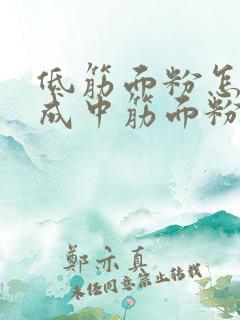 低筋面粉怎
成中筋面粉
鄭亦真
未经同意禁止转载